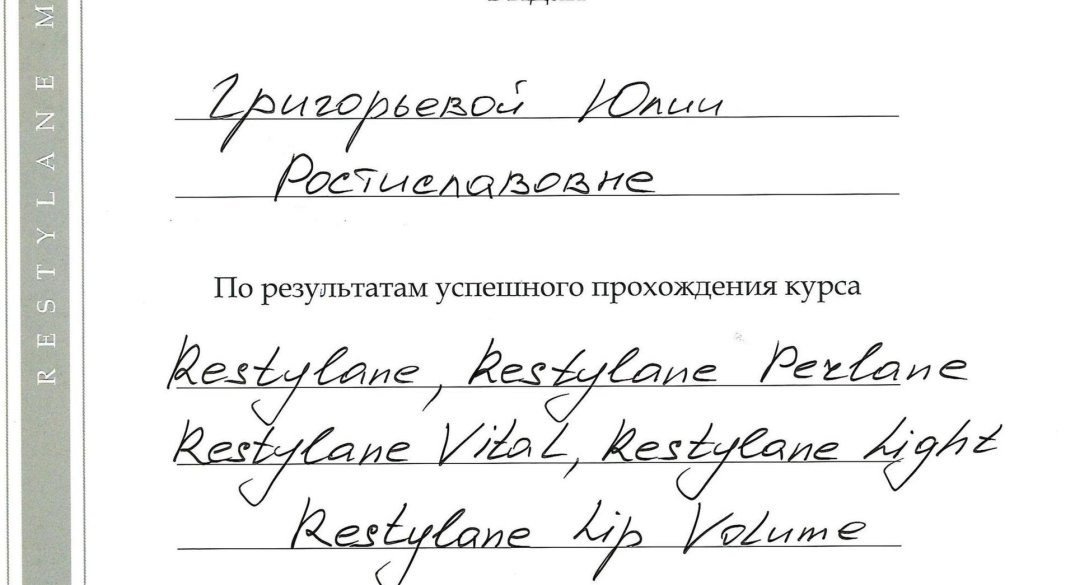 Григорьевой Юлии
Ростиславовне
По результатам успешного прохождения курса
Restylane, Restylane Perlane
Restylane Vital, Restylane Light
Restylane Lip Volume
RESTYLANE M